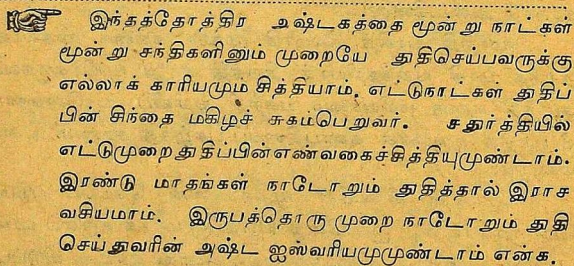 இந்தத்தோத்திர அஷ்டகத்தை மூன்று நாட்கள்
மூன்று சந்திகளினும் முறையே துதிசெய்பவருக்கு
எல்லாக் காரியமும் சித்தியாம். எட்டுநாட்கள் துதிப்
பின் சிந்தை மகிழச் சுகம்பெறுவர். சதுர்த்தியில்
எட்டுமுறை துதிப்பின் எண்வகைச்சித்தியுமுண்டாம்.
இரண்டு மாதங்கள் நாடோறும் துதித்தால் இராச
வசியமாம். இருபத்தொரு முறை நாடோறும் துதி
செய்துவரின் அஷ்ட ஐஸ்வரியமுமுண்டாம் என்க.